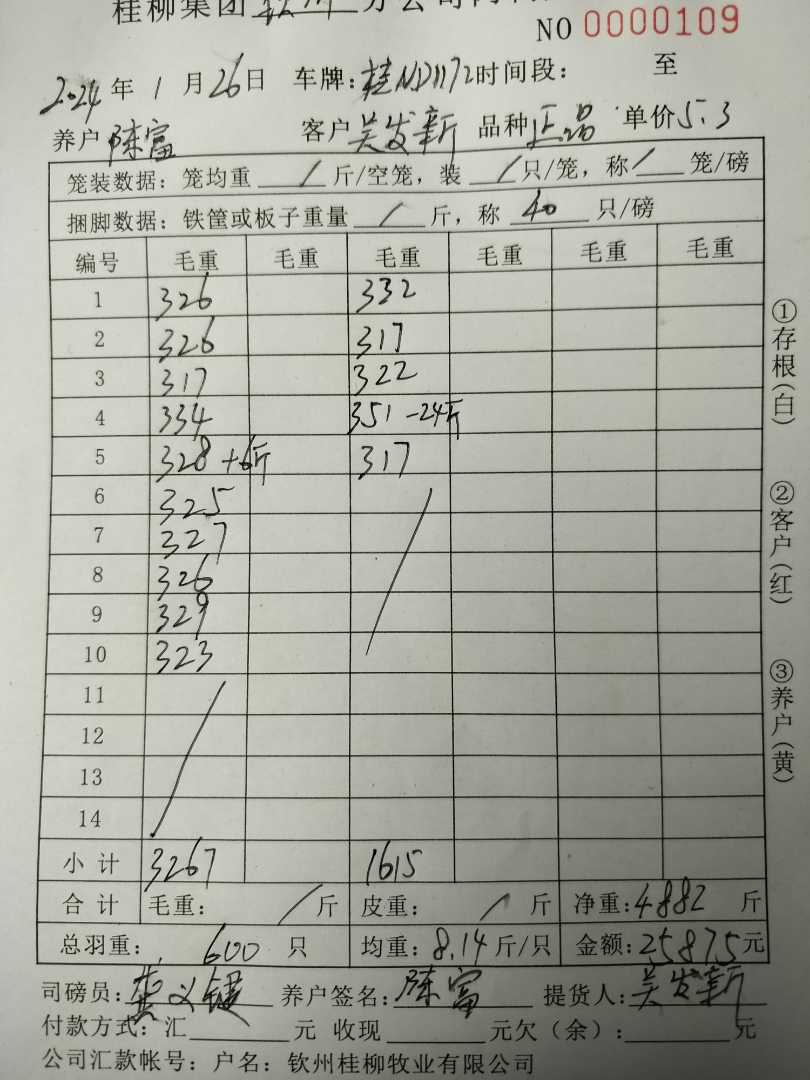 桂柳集团钦州分公司
NO 0000109
2024年1月26日 车牌:桂ND1172时间段: 至
养户陈富 客户吴发新 品种正品 单价5.3
笼装数据:笼均重 / 斤/空笼,装 / 只/笼,称 / 笼/磅
捆脚数据:铁筐或板子重量 / 斤,称 40 只/磅
编号 毛重 毛重 毛重 毛重 毛重 毛重
1 326 332
2 326 317
3 317 322
4 334 351-24斤
5 328+6斤 317
6 325
7 327
8 326
9 329
10 323
11
12
13
14
小 计 3267 1615
合 计 毛重: / 斤 皮重: / 斤 净重:4882 斤
总羽重: 600 只 均重:8.14斤/只 金额:25875元
司磅员: 养户签名:陈富 提货人:吴发新
付款方式:汇 元 收现 元欠(余): 元
公司汇款帐号:户名:钦州桂柳牧业有限公司
①存根(白)
②客户(红)
③养户(黄)